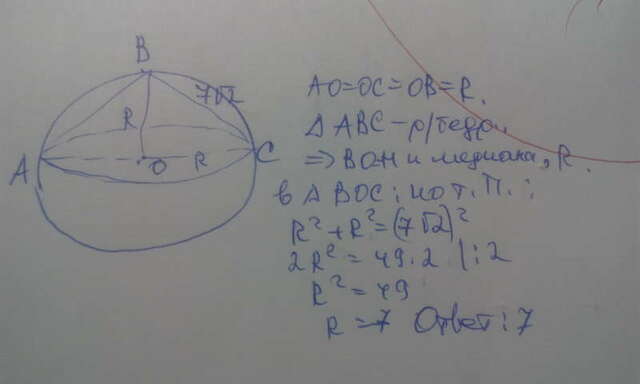 B
7√2
R
A
O
R
C
AO=OC=OB=R.
Δ ABC - р/бедр.
=> BO и медиана, R.
в Δ BOC: по т. П.:
R² + R² = (7√2)²
2R² = 49·2 |:2
R² = 49
R = 7 Ответ: 7